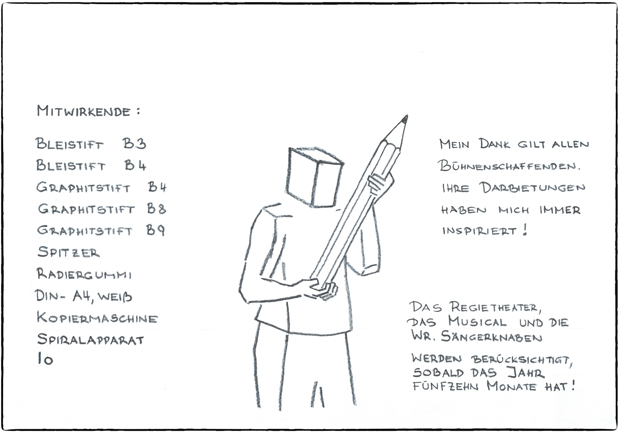 MITWIRKENDE:
BLEISTIFT B3
BLEISTIFT B4
GRAPHITSTIFT B4
GRAPHITSTIFT B8
GRAPHITSTIFT B9
SPITZER
RADIERGUMMI
DIN- A4, WEIß
KOPIERMASCHINE
SPIRALAPPARAT
IO
MEIN DANK GILT ALLEN
BÜHNENSCHAFFENDEN.
IHRE DARBIETUNGEN
HABEN MICH IMMER
INSPIRIERT!
DAS REGIETHEATER,
DAS MUSICAL UND DIE
WR. SÄNGERKNABEN
WERDEN BERÜCKSICHTIGT,
SOBALD DAS JAHR
FÜNFZEHN MONATE HAT!